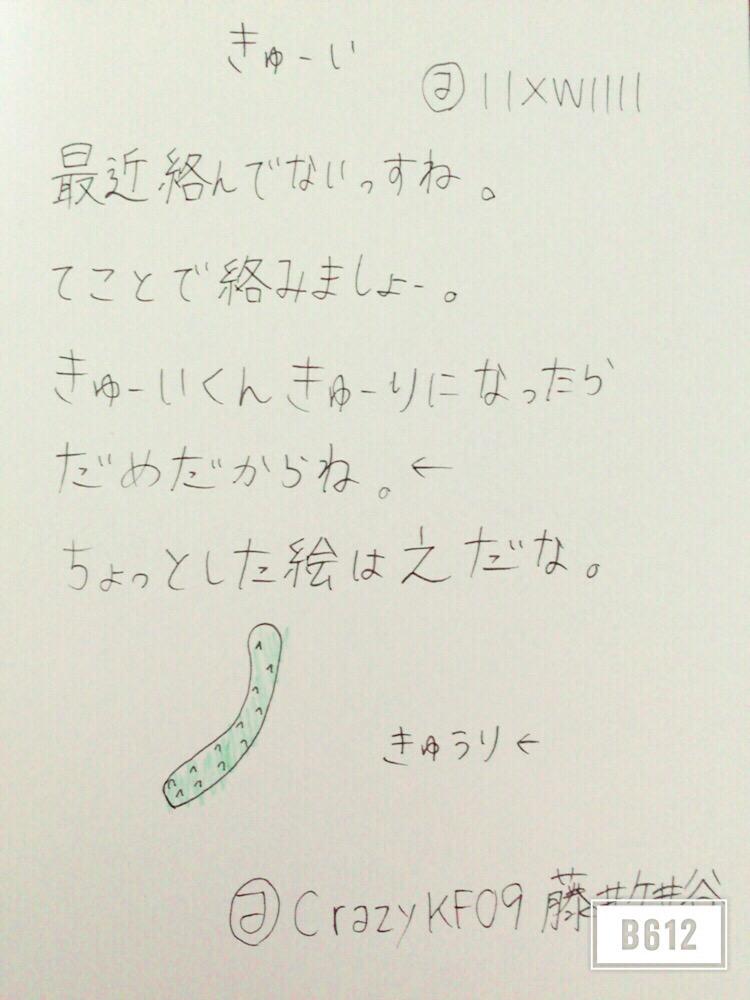 きゅーい
@11xw1111
最近絡んでないっすね。
てことで絡みましょー。
きゅーいくんきゅーりになったら
だめだからね。←
ちょっとした絵はえだな。
きゅうり←
@CrazyKF09 藤
B612